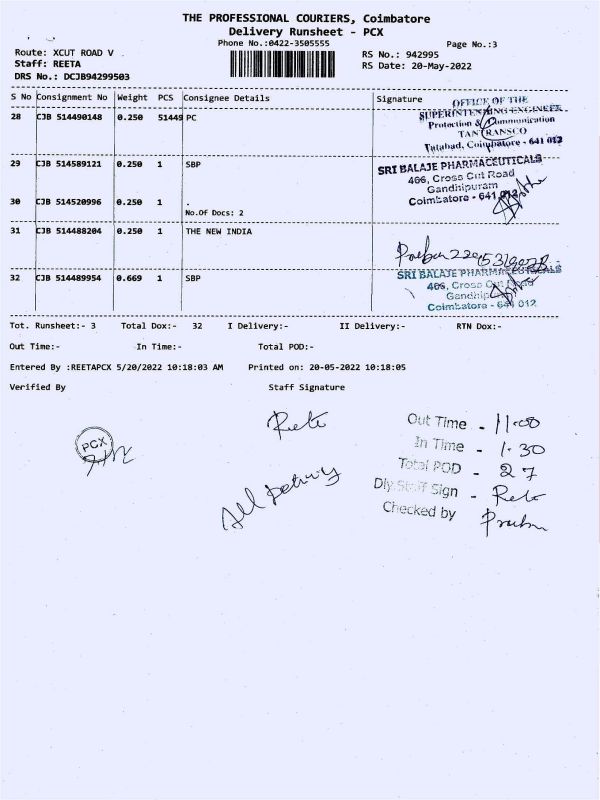 THE PROFESSIONAL COURIERS, Coimbatore
Delivery Runsheet - PCX
Phone No.:0422-3505555
Page No.:3
Route: XCUT ROAD V
RS No.: 942995
Staff: REETA
RS Date: 20-May-2022
DRS No.: DCJB94299503
S No Consignment No Weight PCS Consignee Details Signature
28 CJB 514490148 0.250 51449 PC
OFFICE OF THE
SUPERINTENDING ENGINEER
Protection & Communication
TANTRANSCO
Tatabad, Coimbatore - 641 012
29 CJB 514589121 0.250 1 SBP
SRI BALAJE PHARMACEUTICALS
466, Cross Cut Road
Gandhipuram
Coimbatore - 641 012
30 CJB 514520996 0.250 1 .
No.Of Docs: 2
31 CJB 514488204 0.250 1 THE NEW INDIA
32 CJB 514489954 0.669 1 SBP
SRI BALAJE PHARMACEUTICALS
466, Cross Cut Road
Gandhip
Coimbatore - 641 012
Tot. Runsheet:- 3 Total Dox:- 32 I Delivery:- II Delivery:- RTN Dox:-
Out Time:- In Time:- Total POD:-
Entered By :REETAPCX 5/20/2022 10:18:03 AM Printed on: 20-05-2022 10:18:05
Verified By Staff Signature
PCX
Out Time - 11-00
In Time - 1-30
Total POD - 27
Dly Staff Sign -
Checked by